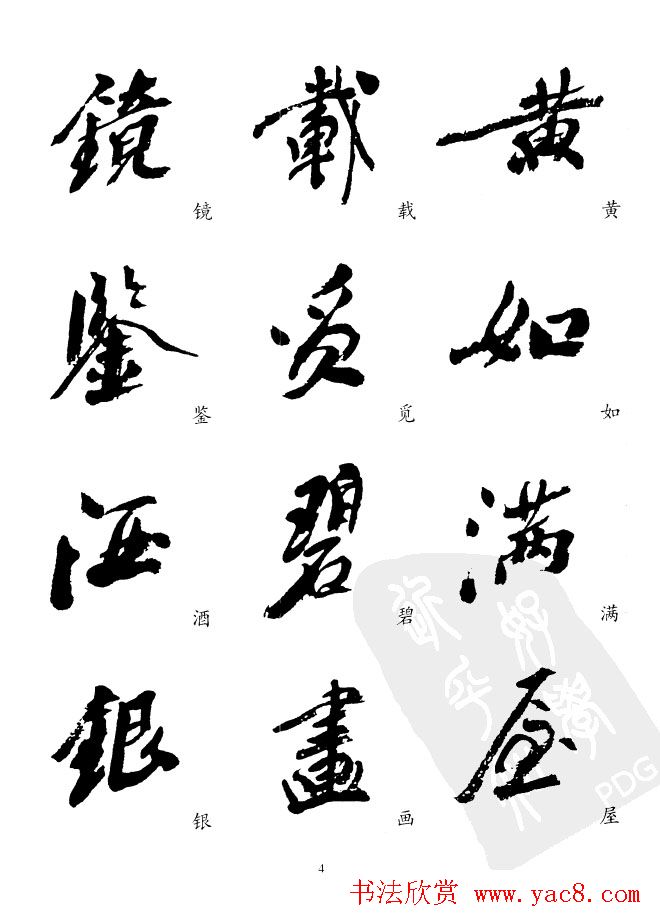 黄
黄
如
如
满
满
屋
屋
載
载
覓
觅
碧
碧
畫
画
鏡
镜
鑒
鉴
酒
酒
銀
银
PDG
4
书法欣赏 www.yac8.com